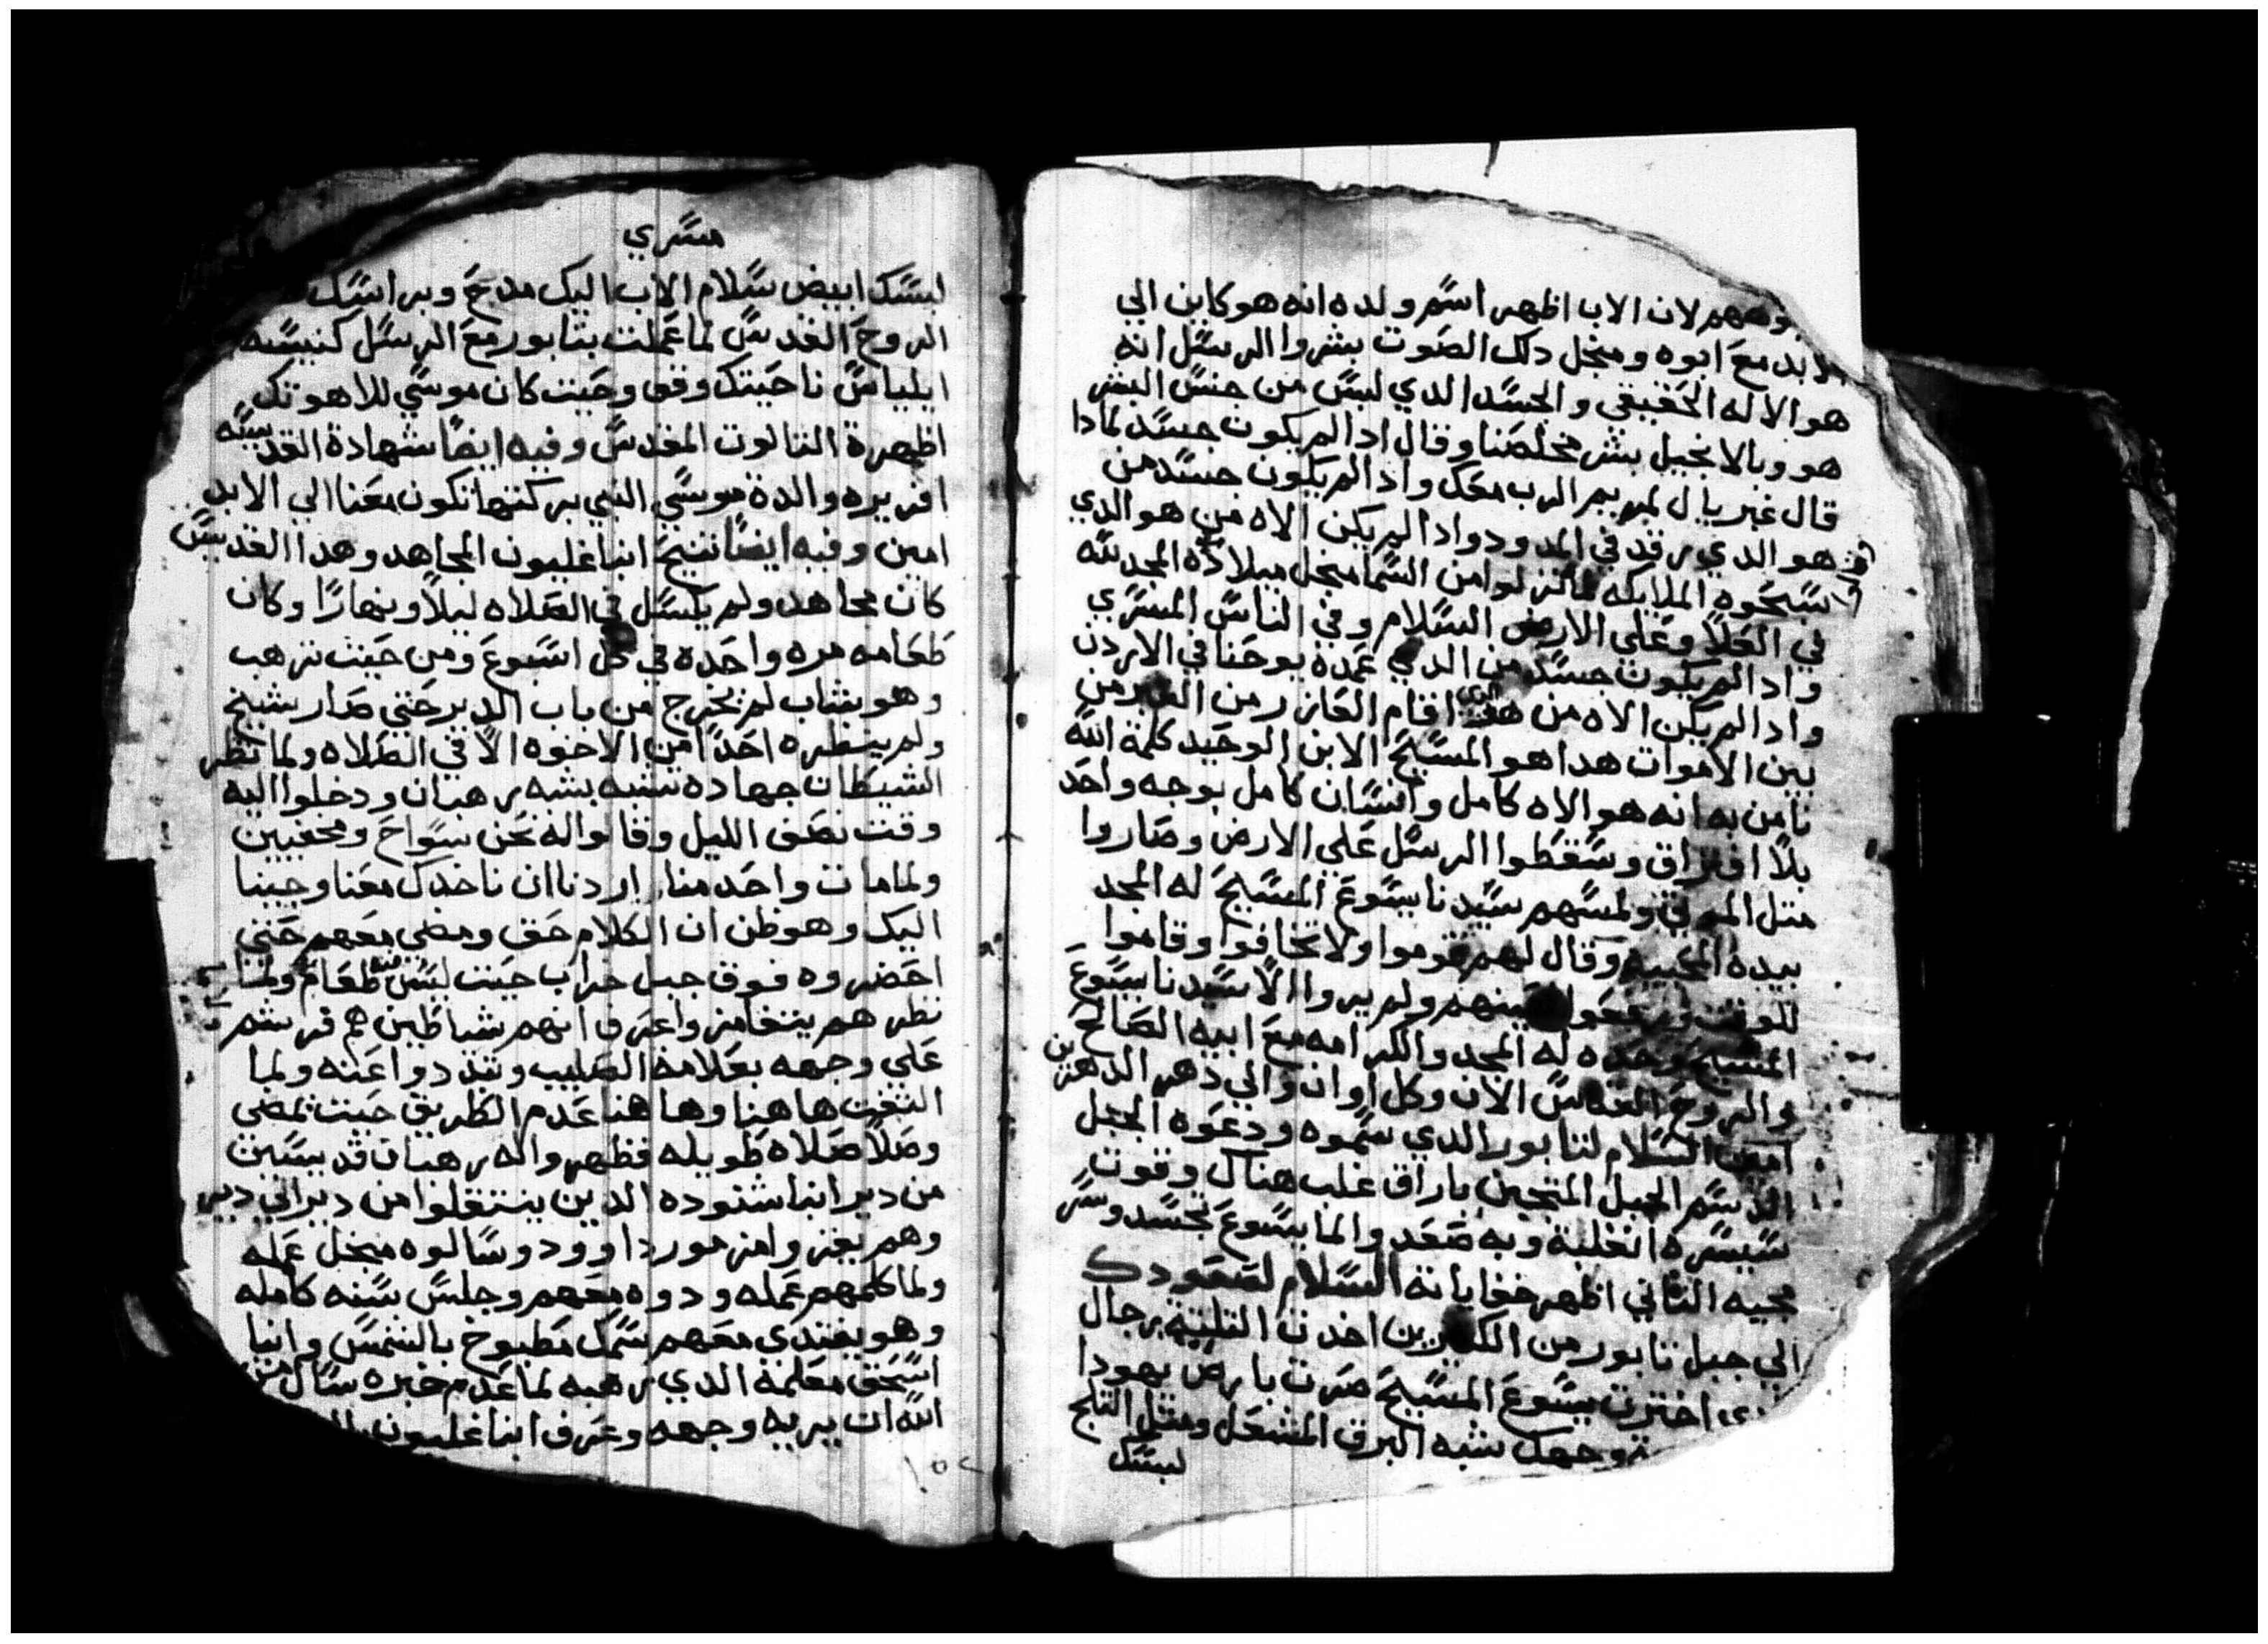 وههم لان الاب اظهر اسم ولده انه هو كاين الي
الابد مع ابوه ومنجل دلك الصوت بشروا الرسل انه
هو الاله الحقيقي والجسد الدي لبس من جنس البشر
هو وبالانجيل بشر مخلصنا وقال ادا لم يكون جسد لمادا
قال غبريال لمريم الرب معك وادا لم يكون جسد من
هو الدي رقد في المدود وادا لم يكن الاه من هو الدي
سبحوه الملايكه لما نزلوا من السما منجل ميلاده المجد لله
في العلا وعلى الارض السلام وفي الناس المسري
وادا لم يكون جسد من الدي عمده يوحنا في الاردن
وادا لم يكن الاه من هو الدي اقام العازر من القبر من
بين الاموات هدا هو المسيح الابن الوحيد كلمة الله
نامن به انه هو الاه كامل وانسان كامل بوجه واحد
بلا افتراق وسقطوا الرسل علي الارض وصاروا
متل الموتي ولمسهم سيدنا يسوع المسيح له المجد
بيده المحييه وقال لهم قوموا ولا تخافوا وقاموا
للوقت ورفعوا عينهم ولم يروا الا سيدنا يسوع
المسيح وحده له المجد والكرامه مع ابيه الصالح
والروح القدس الان وكل اوان والي دهر الدهرين
امين السلام لتابور الدي سموه ودعوه الجبل
الدسم الجبل المتجبن باراق غلب هناك وقوت
سيسره انغلبة وبه صعد والما يسوع بجسد وسر
مجيه التاني اظهر خفاياته السلام لصعودك
الي جبل تابور من الكتيرين اخدت التلتة رجال
اخترت يسوع المسيح صرت بارض يهودا
وجهك شبه البرق المشعل ومتل التلج
لبسك
مسري
لبسك ابيض سلام الاب اليك مدح وبراسك
الروح القدس لما عملت بتابور مع الرسل كنيسه
ايلياس ناحيتك وقف وحيت كان موسي للاهوتك
اظهرة التالوت المقدس وفيه ايضا شهادة القديسه
افريره والدة موسي النبي بركتها تكون معنا الي الابد
امين وفيه ايضا تنيح انبا غليون المجاهد وهدا القديس
كان مجاهد ولم يكسل في الصلاه ليلا ونهارا وكان
طعامه مره واحده في كل اسبوع ومن حيت ترهب
وهو بشاب لم يخرج من باب الدير حتي صار شيخ
ولم ينظره احدا من الاخوه الا في الصلاه ولما نظر
الشيطان جهاده تشبه بشبه رهبان ودخلوا اليه
وقت نصف الليل وقالوا له نحن سواح ومخفيين
ولما مات واحد منا اردنا ان ناخدك معنا وجينا
اليك وهو ظن ان الكلام حق ومضي معهم حتي
احضروه فوق جبل خراب حيت ليس فيه طعام ولما
نظرهم يتغامزوا عرف انهم شياطين هم فرشم
علي وجهه بعلامة الصليب وتبددوا عنه ولما
التفت هاهنا وهاهنا عدم الطريق حيت يمضي
وصلا صلاه طويله فظهروا له رهبان قديسين
من دير انبا شنوده الدين ينتقلوا من دير الي دير
وهم يغنوا مزمور داوود وسالوه منجل عمله
ولما كلمهم عمله ودوه معهم وجلس سنه كامله
وهو يغتدي معهم سمك مطبوخ بالشمس وانبا
اسحق معلمه الدي رهبه لما عدم خبره سال من
الله ان يريه وجهه وعرف انبا غليون